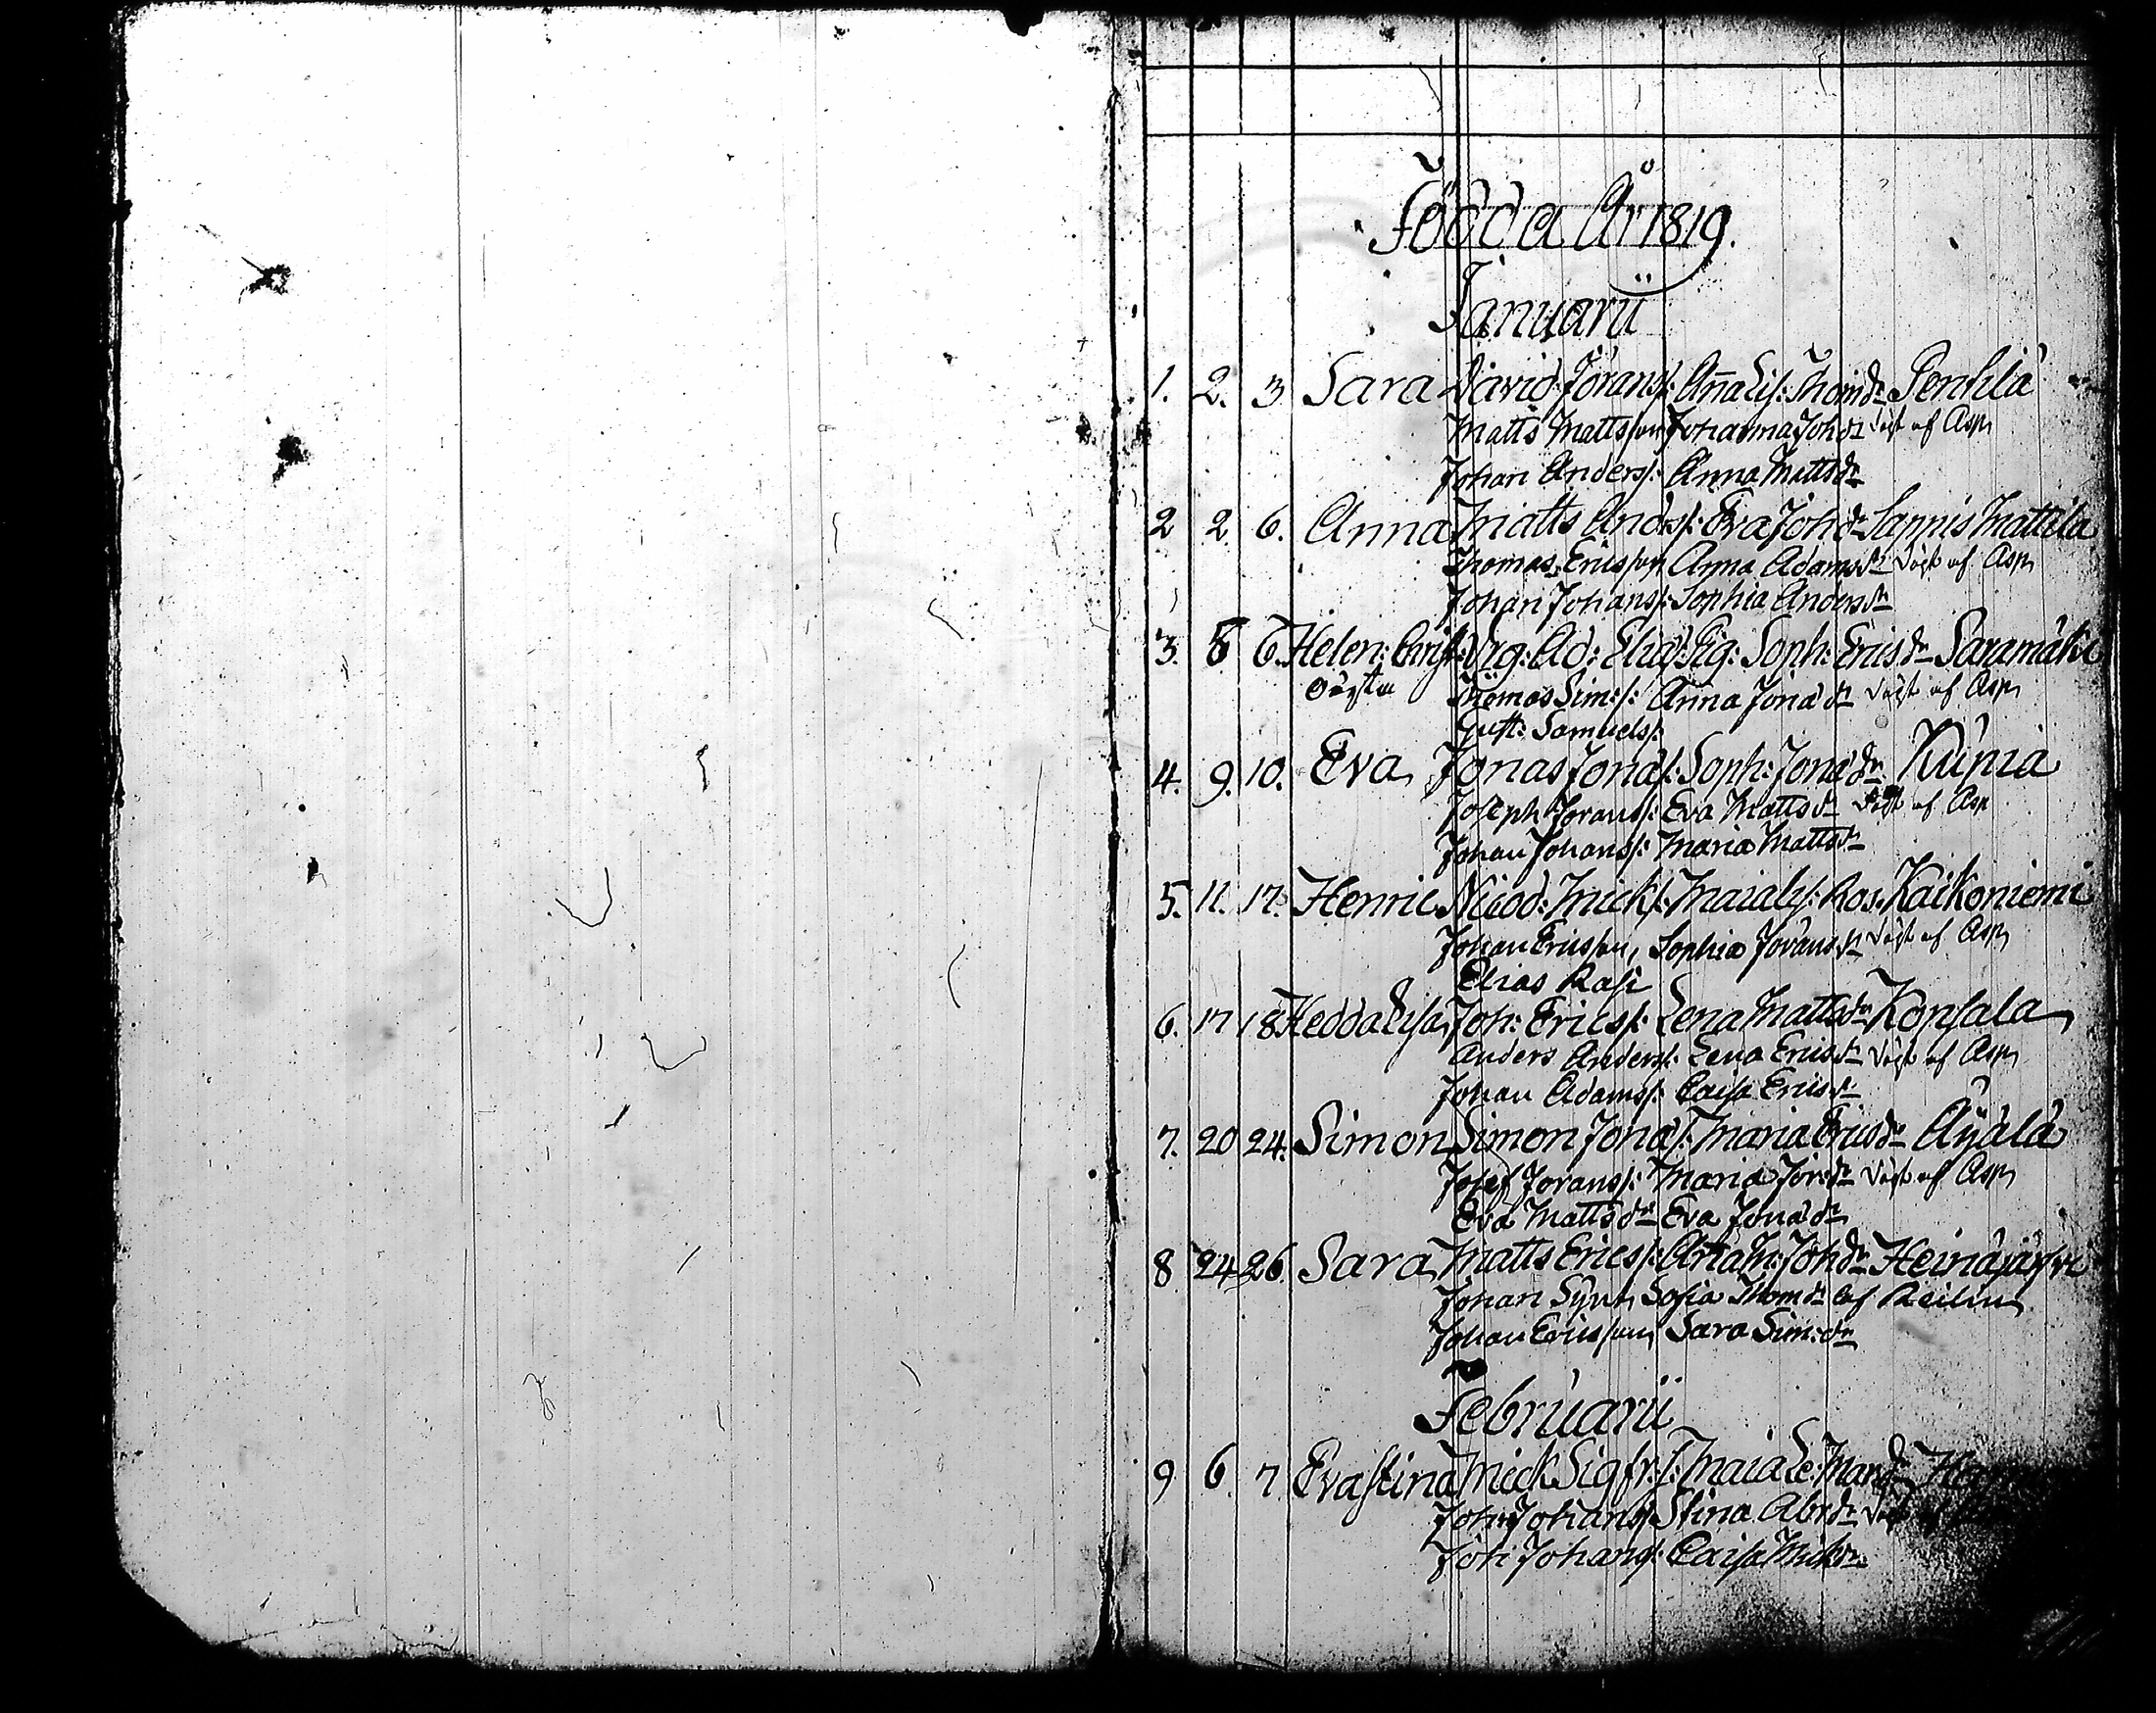 Födda År 1819.
Januarii
1. 2. 3. Sara David Jörans/: Anna Lis: Thom dr Penhlä
Matts Mattsson Johanna Joh dr döpt af Asp
Johan Anders/: Anna Matts dr
2 2. 6. Anna Matts Anders/: Eva Joh dr Lappis Mattila
Thomas Ericsson Anna Adams dr döpt af Asp
Johan Johans/: Sophia Anders dr
3. 5 6. Helen: Christ: Drg: Ad: Elia/: Pig: Soph: Erics dr Saramäki
oägta Thomas Sim:/: Anna Jona dr döpt af Asp
Gust: Samuels/:
4. 9. 10. Eva Jonas Jona/: Soph: Jona dr
Joseph Jorans/: Eva Matts dr döpt af Asp
Johan Johans/: Maria Matts dr
5. 11. 17. Henric Nicod: Mick/: Maja Lis: Ros. Kaikoniemi
Johan Ericsson, Sophia Jörans dr döpt af Asp
Elias Rasi
6. 17 18. Hedda Lisa Joh: Erics/: Lena Matts dr Kopsala
Anders Anders/: Lena Erics dr döpt af Asp
Johan Adams/: Caisa Erics dr
7. 20 24. Simon Simon Jona/: Maria Erics dr Äyälä
Josef Jorans/: Maria Jör: dr döpt af Asp
Eva Matts dr Eva Jona dr
8 24 26. Sara Matts Erics/: Anna M: Joh dr Heinäjärvi
Johan Sofia Thom dr af Reilin
Johan Ericsson Sara Sim: dr
Februarii
9 6. 7. Eva Stina Mick Sigfr:/: Maja Le: Mar dr
Joh: Johans/: Stina Abr dr döpt af
Joh: Johans/: Caisa Mick dr